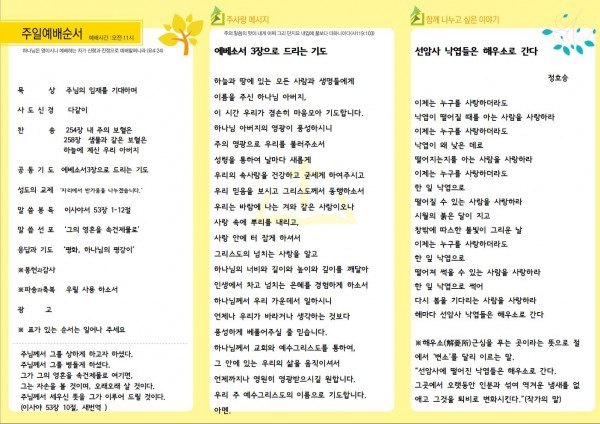 주일예배순서 예배시간 : 오전 11시
하나님은 영이시니 예배하는 자가 신령과 진정으로 예배할찌니라 (요4:24)
묵 상 주님의 임재를 기대하며
사 도 신 경 다같이
찬 송 254장 내 주의 보혈은
258장 샘물과 같은 보혈은
하늘에 계신 우리 아버지
공 동 기 도 에베소서3장으로 드리는 기도
성도의 교제 '자리에서 반가움을 나누겠습니다.'
말 씀 봉 독 이사야서 53장 1-12절
말 씀 선 포 '그의 영혼을 속건제물로'
응답과 기도 '평화, 하나님의 평강이'
※봉헌과감사
※파송과축복 우릴 사용 하소서
광 고
※ 표가 있는 순서는 일어나 주세요
주님께서 그를 상하게 하고자 하셨다.
주님께서 그를 병들게 하셨다.
그가 그의 영혼을 속건제물로 여기면,
그는 자손을 볼 것이며, 오래오래 살 것이다.
주님께서 세우신 뜻을 그가 이루어 드릴 것이다.
(이사야 53장 10절, 새번역 )
주사랑 메시지
주의 말씀의 맛이 내게 어찌 그리 단지요 내입에 꿀보다 더하니이다(시119:103)
에베소서 3장으로 드리는 기도
하늘과 땅에 있는 모든 사람과 생명들에게
이름을 주신 하나님 아버지,
이 시간 우리가 겸손히 마음모아 기도합니다.
하나님 아버지의 영광이 풍성하시니
주의 영광으로 우리를 불러주소서
성령을 통하여 날마다 새롭게
우리의 속사람을 건강하고 굳세게 하여주시고
우리 믿음을 보시고 그리스도께서 동행하소서
우리는 바람에 나는 겨와 같은 사람이오나
사랑 속에 뿌리를 내리고,
사랑 안에 터 잡게 하셔서
그리스도의 넘치는 사랑을 알고
하나님의 너비와 길이와 높이와 깊이를 깨달아
인생에서 차고 넘치는 은혜를 경험하게 하소서
하나님께서 우리 가운데서 일하시니
언제나 우리가 바라거나 생각하는 것보다
풍성하게 베풀어주실 줄 믿습니다.
하나님께서 교회와 예수그리스도를 통하여,
그 안에 있는 우리의 삶을 움직이셔서
언제까지나 영원히 영광받으시길 원합니다.
우리 주 예수그리스도의 이름으로 기도합니다.
아멘.
함께 나누고 싶은 이야기
선암사 낙엽들은 해우소로 간다
정호승
이제는 누구를 사랑하더라도
낙엽이 떨어질 때를 아는 사람을 사랑하라
이제는 누구를 사랑하더라도
낙엽이 왜 낮은 데로
떨어지는지를 아는 사람을 사랑하라
이제는 누구를 사랑하더라도
한 잎 낙엽으로
떨어질 수 있는 사람을 사랑하라
시월의 붉은 달이 지고
창밖에 따스한 불빛이 그리운 날
이제는 누구를 사랑하더라도
한 잎 낙엽으로
떨어져 썩을 수 있는 사람을 사랑하라
한 잎 낙엽으로 썩어
다시 봄을 기다리는 사람을 사랑하라
해마다 선암사 낙엽들은 해우소로 간다
※해우소(解憂所)근심을 푸는 곳이라는 뜻으로 절
에서 "변소"를 달리 이르는 말.
"선암사에 떨어진 낙엽들은 해우소로 간다.
그곳에서 오랫동안 인분과 섞여 역겨운 냄새를 없
애고 그것을 퇴비로 변화시킨다."(작가의 말)